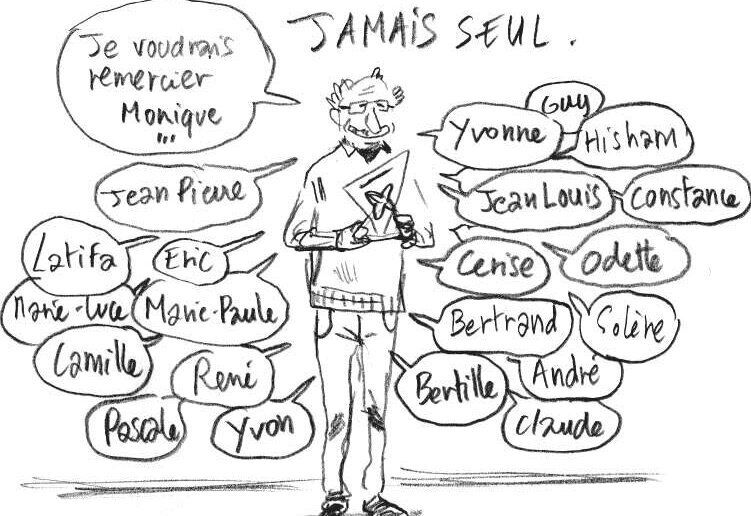 JAMAIS SEUL.
Je voudrais
remercier
Monique
...
Jean Pierre
Latifa
Eric
Marie-Luce
Marie-Paule
Camille
René
Pascale
Yvon
Guy
Yvonne
Hisham
Jean Louis
Constance
Cerise
Odette
Bertrand
Solène
Bertille
André
Claude